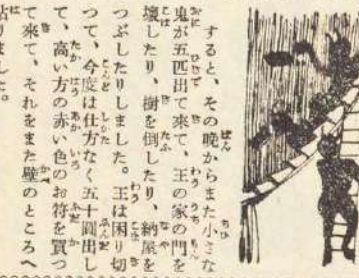 すると、その晩からまた小さな
鬼が五匹出て來て、王の家の門を
壊したり、樹を倒したり、納屋を
つぶしたりしました。王は困り切
つて、今度は仕方なく五十圓出し
て、高い方の赤い色のお符を買つ
て來て、それをまた壁のところへ
貼りました。